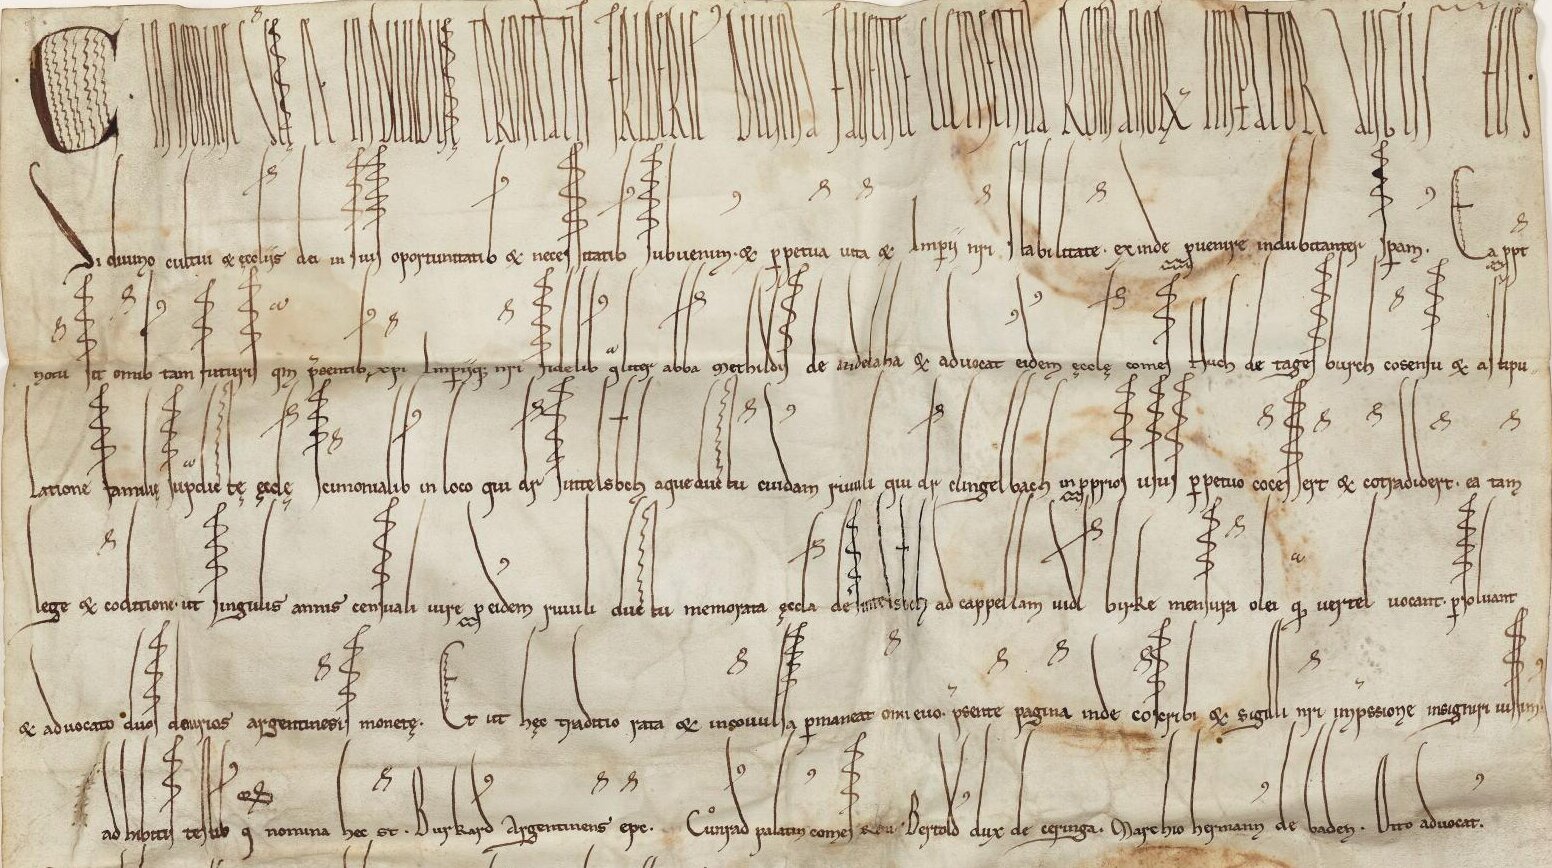 C IN NOMINE SCĘ ET INDIVIDUĘ TRINITATIS FRIDERIC' DIVINA FAVENTE CLEMENTIA ROMANORX IMPATOR AUGUSTUS
Si divino cultui & ęccliis dei in suis oportunitatib & necessitatib subvenim' & ppetua vita & Imperii nri stabilitate exinde pvenire indubitanter speram. Ea ppt
notū sit omib tam futuris qm psentib xpi Imperiiq; nri fidelib qliter abba Methildis de Andelaha & advocat eidem ęcclę comes Huch de tagesburch cosensu & astipu
latione familię supdictę ęcclę scimonialib in loco qui dr Sintelsbch aqueductū cuidam rivuli qui dr clingelbach in pprios usus ppetuo cocessert & cotradidert. ea tam
lege & coditione ut singulis annis censuali iure p eidem rivuli ductu memorata ęccla de Sintelsbch ad cappellam vid birke mensura olei q vertel vocant psolvant
& advocato duos denrios argentinesis monetę. Et ut hęc traditio rata & incovulsa pmaneat omi evo. psente pagina inde coscribi & sigilli nri impssione insigniri iussim'
adhibitis testib q nomina hec st. Burkard Argentinens epc. Cunrad palatin comes Bertold dux de ceringa. Marchio hermann de baden. Otto advocat.